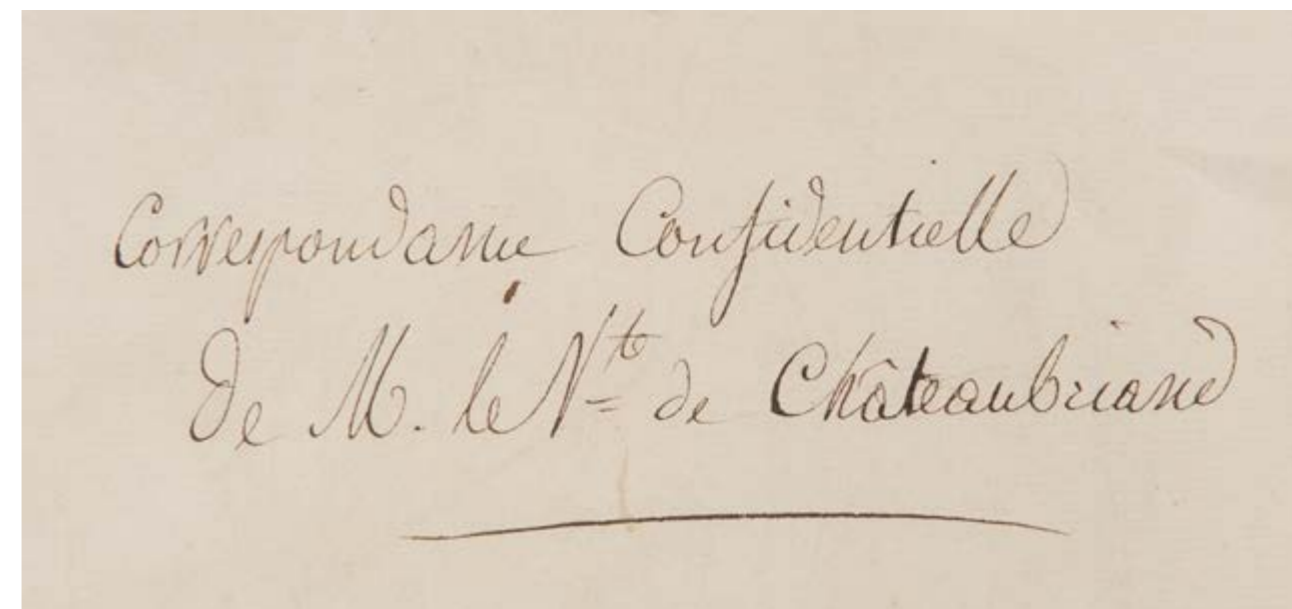 Correspondance Confidentielle
de M. le Vte de Châteaubriand